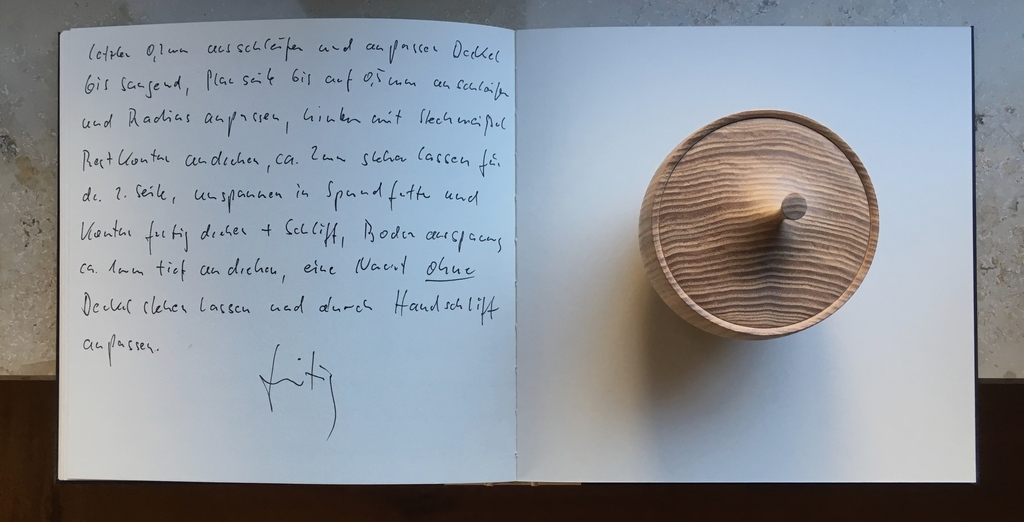 letzten 0,2mm ausschleifen und anpassen Deckel
bis saugend, Planseite bis auf 0,5mm anschleifen
und Radius anpassen, hinten mit Stechmeißel
Restkontur andrehen, ca. 2mm stehen lassen für
die 2. Seite, umspannen in Spundfutter und
Kontur fertig drehen + Schliff, Boden
ca. 1mm tief andrehen, eine Nacht ohne
Deckel stehen lassen und durch Handschliff
anpassen.
fertig